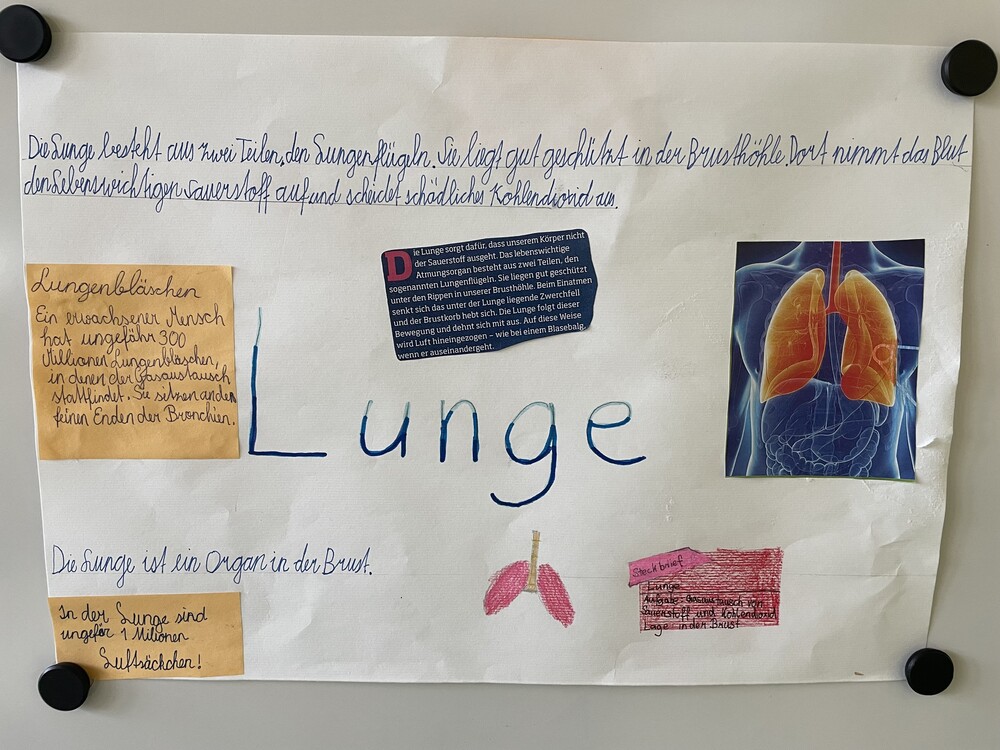 Die Lunge besteht aus zwei Teilen, den Lungenflügeln. Sie liegt gut geschützt in der Brusthöhle. Dort nimmt das Blut
den Lebenswichtigen Sauerstoff auf und scheidet schädliches Kohlendioxid aus.
Lungenbläschen
Ein erwachsener Mensch
hat ungefähr 300
Millionen Lungenbläschen,
in denen der Gasaustausch
stattfindet. Sie sitzen an den
feinen Enden der Bronchien.
Die Lunge sorgt dafür, dass unserem Körper nicht
der Sauerstoff ausgeht. Das lebenswichtige
Atmungsorgan besteht aus zwei Teilen, den
sogenannten Lungenflügeln. Sie liegen gut geschützt
unter den Rippen in unserer Brusthöhle. Beim Einatmen
senkt sich das unter der Lunge liegende Zwerchfell
und der Brustkorb hebt sich. Die Lunge folgt dieser
Bewegung und dehnt sich mit aus. Auf diese Weise
wird Luft hineingezogen – wie bei einem Blasebalg,
wenn er auseinandergeht.
Lunge
Die Lunge ist ein Organ in der Brust.
In der Lunge sind
ungefär 1 Milionen
Luftsäckchen!
Steckbrief
Lunge
Aufgabe: Gasaustausch von
Sauerstoff und Kohlendioxid
Lage: in der Brust